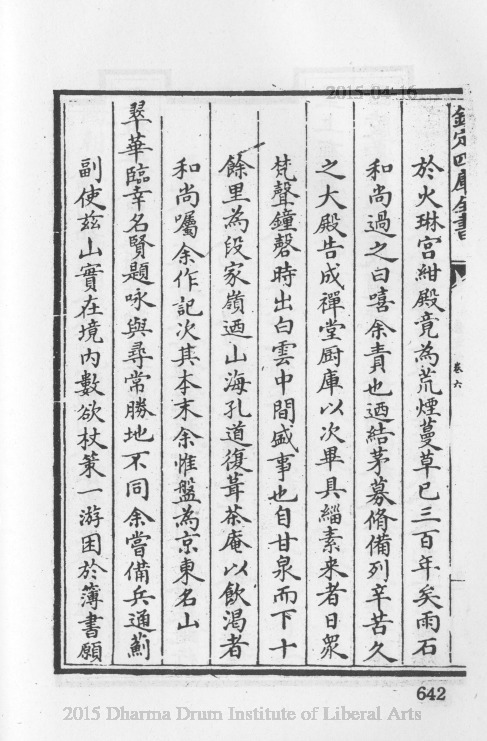 2015-04-16
欽定四庫全書
卷六
於火琳宮紺殿竟為荒煙蔓草已三百年矣雨石
和尚過之曰嘻余責也迺結茅募脩備列辛苦久
之大殿告成禪堂厨庫以次畢具緇素来者日衆
梵聲鐘磬時出白雲中間盛事也自甘泉而下十
餘里為段家嶺迺山海孔道復葺茶庵以飲渴者
和尚囑余作記次其本末余惟盤為京東名山
翠華臨幸名賢題咏與尋常勝地不同余嘗備兵通薊
副使兹山實在境内數欲杖策一游困於簿書願
642
2015 Dharma Drum Institute of Liberal Arts